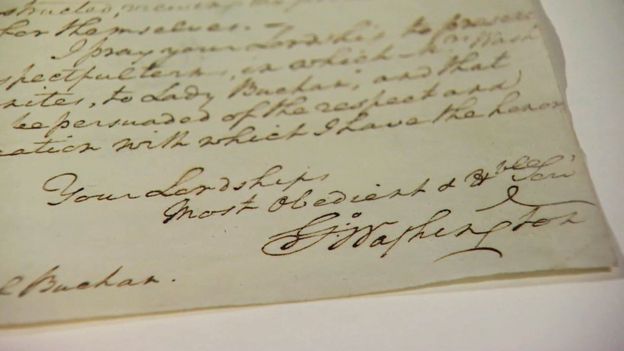 structed, 
her themselves. —
I pray your Lordship to present
spectful terms, in which Mrs Wash
nites, to Lady Buchan, and that
be persuaded of the respect and
cation with which I have the honor
Your Lordships
Most Obedient & Hble Ser
Go: Washington
Buchan.